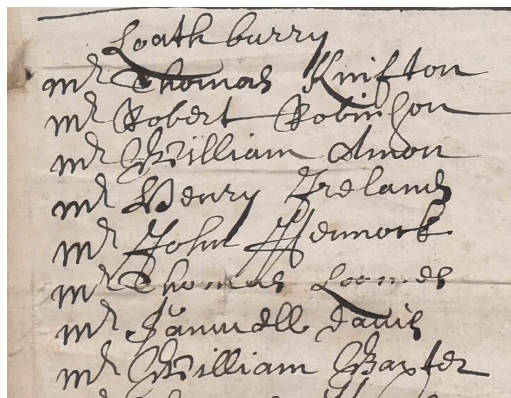 Loathburry
Mr Thomas Knifton
Mr Robert Robinson
Mr William Amon
Mr Henry Ireland
Mr John
Mr Thomas Loomes
Mr Samuell Davis
Mr William Baxter